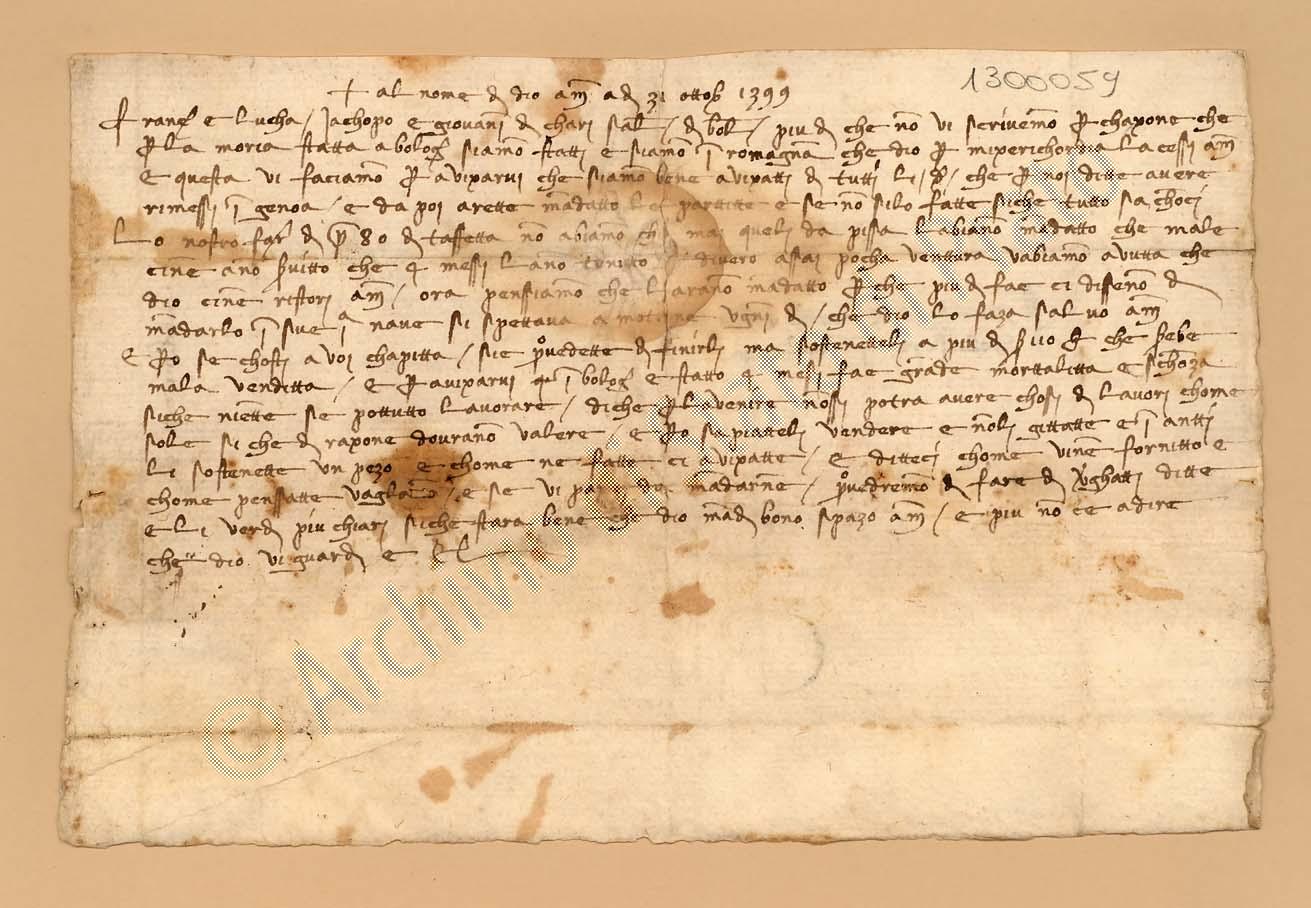 1300059
+ al nome d dio am̃ a d 31 ottob 1399
Franc e lucha / Jachopo e giovani d chari sal / d bol / piu d che nō vi scrivemo p chaxone che
p la moria statta a bolog siamo statti e siamo ī romagna che dio p mixerichordia la cessi am̃
e questa vi faciamo p avixarvi che siamo bene avixatti d tutti li che p noi ditte avere
rimessi ī genoa / e da poi arette mādatto le partitte e se nō silo fatte siche tutto sa choci
Lo nostro d 80 d taffetta nō abiamo mai queli da pissa l abiano mādatto che male
cine ano svitto che 4 messi l ano tenuto divero assai pocha ventura v abiamo avutta che
dio cine ristori am̃ / ora penssiamo che l arano mādatto p che piu d fae ci disseno d
mādarlo ī sue ī nave si spettava a ugni d / che dio lo faza salvo am̃
E po se chosti a voi chapitta / sie pvedette d finirli ma sostenetteli a piu d che
mala venditta / e p avixarvi qui ī bolog e statto 4 messi fae grāde morttalitta e schoza
siche niente se pottutto lavorare / diche p l avenire nossi potra avere chosi d lavori chome
sole si che d raxone dourano valere / e po sapiatteli vendere e noli gittatte e ī antti
li sostenette un pezo e chome ne fatte ci avixatte / e ditteci chome vine fornitto e
chome penssatte vagliano / e se vi par de mādarne / pvedremo d fare d vghatti ditte
e li verd piu chiari siche stara bene che dio mād bono spazo am̃ / e piu nō ce a dire
che dio vi guard e
© Archivio di Stato di Prato